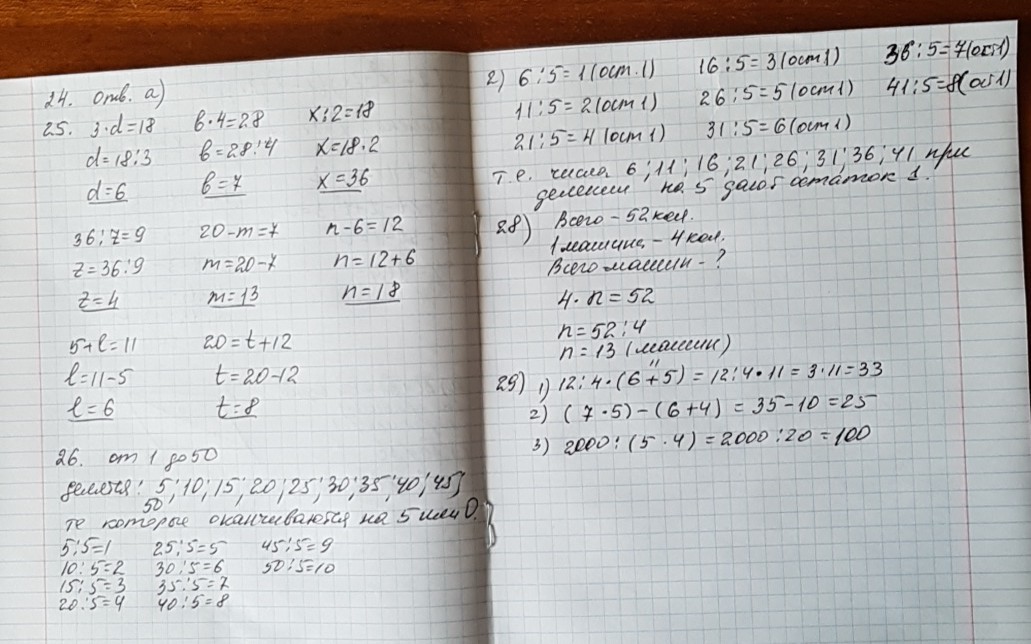 24. отв. а)
25. 3·d=18 в·4=28 x:2=18
d=18:3 в=28:4 x=18·2
d=6 в=7 x=36
36:z=9 20-m=7 n-6=12
z=36:9 m=20-7 n=12+6
z=4 m=13 n=18
5+l=11 20=t+12
l=11-5 t=20-12
l=6 t=8
26. от 1 до 50
делятся: 5; 10; 15; 20; 25; 30; 35; 40; 45;
50
те которые оканчиваются на 5 или 0.
5:5=1 25:5=5 45:5=9
10:5=2 30:5=6 50:5=10
15:5=3 35:5=7
20:5=4 40:5=8
2) 6:5=1(ост.1) 16:5=3(ост1) 36:5=7(ост1)
11:5=2(ост1) 26:5=5(ост1) 41:5=8(ос1)
21:5=4(ост1) 31:5=6(ост1)
т.е. числа 6; 11; 16; 21; 26; 31; 36; 41 при
делении на 5 дают остаток 1.
28) Всего - 52 кол.
1 машина - 4 кол.
Всего машин - ?
4·n=52
n=52:4
n=13 (машин)
11
29) 1) 12:4·(6+5)=12:4·11=3·11=33
2) (7·5)-(6+4)=35-10=25
3) 2000:(5·4)=2000:20=100